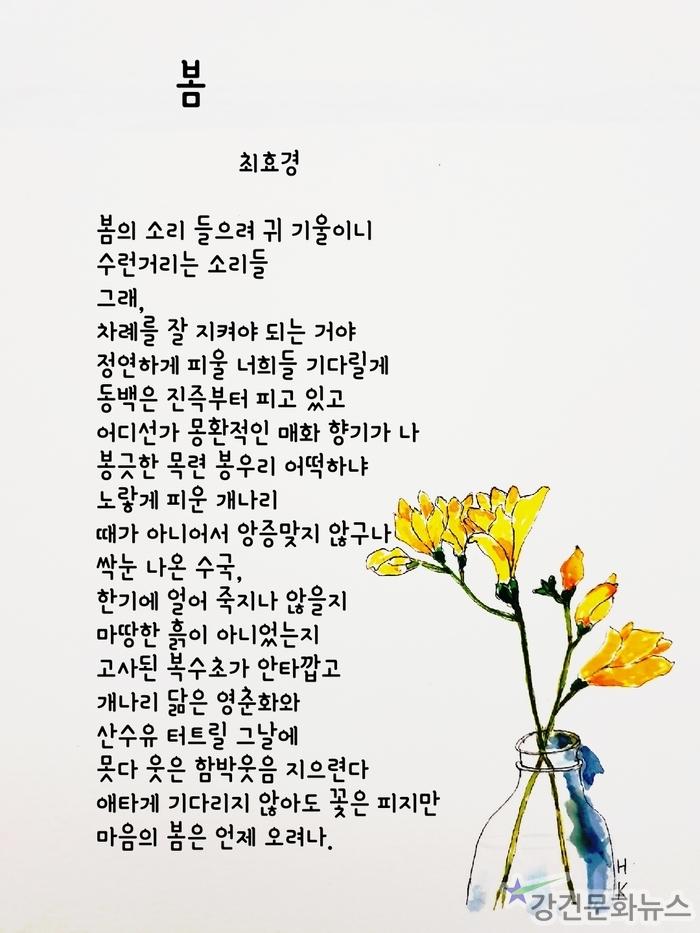 봄
최효경
봄의 소리 들으려 귀 기울이니
수런거리는 소리들
그래,
차례를 잘 지켜야 되는 거야
정연하게 피울 너희들 기다릴게
동백은 진즉부터 피고 있고
어디선가 몽환적인 매화 향기가 나
봉긋한 목련 봉우리 어떡하냐
노랗게 피운 개나리
때가 아니어서 앙증맞지 않구나
싹눈 나온 수국,
한기에 얼어 죽지나 않을지
마땅한 흙이 아니었는지
고사된 복수초가 안타깝고
개나리 닮은 영춘화와
산수유 터트릴 그날에
못다 웃은 함박웃음 지으련다
애타게 기다리지 않아도 꽃은 피지만
마음의 봄은 언제 오려나.
H
K
강건문화뉴스